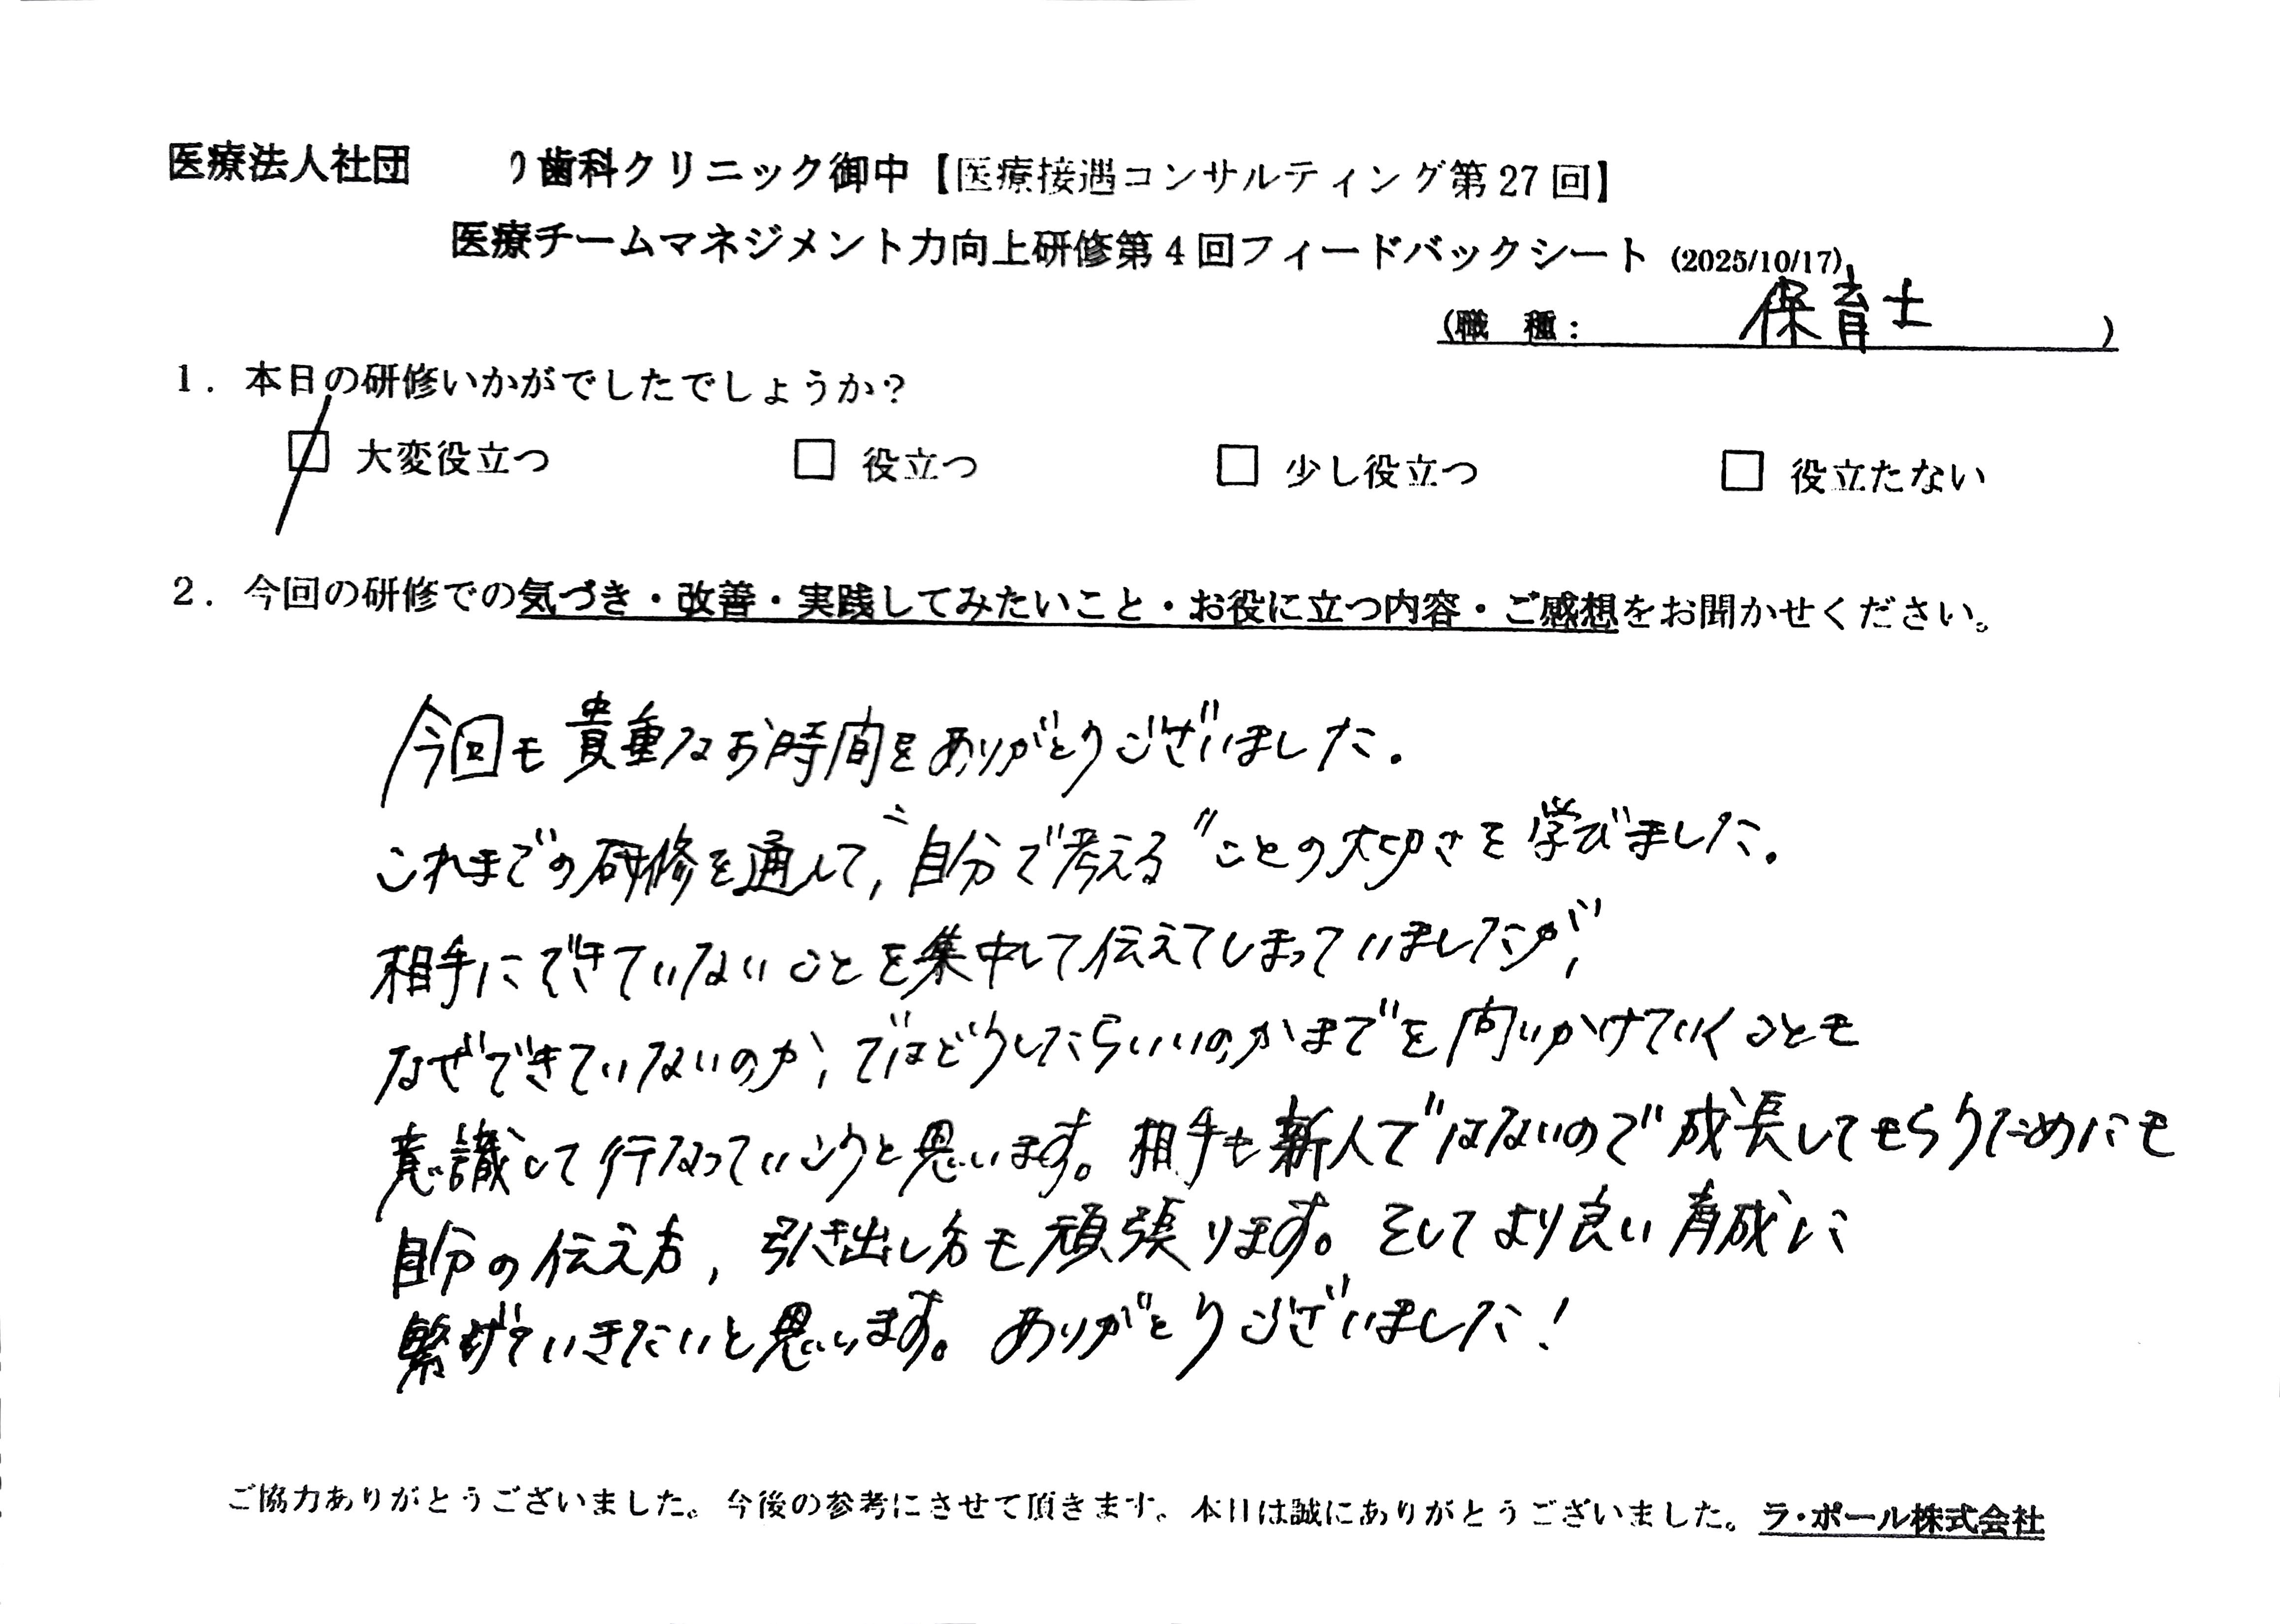 医療法人社団 り歯科クリニック御中【医療接遇コンサルティング第27回】
医療チームマネジメント力向上研修第4回フィードバックシート (2025/10/17)
(職 種: 保育士 )
1. 本日の研修いかがでしたでしょうか?
☑ 大変役立つ □ 役立つ □ 少し役立つ □ 役立たない
2. 今回の研修での気づき・改善・実践してみたいこと・お役に立つ内容・ご感想をお聞かせください。
今回も貴重なお時間をありがとうございました.
これまでの研修を通して, "自分で考える"ことの大切さを学びました.
相手にできていないことを集中して伝えてしまっていましたが,
なぜできていないのか, ではどうしたらいいのかまでを問いかけていくことも
意識して行なっていこうと思います。相手も新人ではないので成長してもらうためにも
自分の伝え方, 引き出し方も頑張ります。そしてより良い育成に
繋げていきたいと思います。ありがとうございました!
ご協力ありがとうございました。今後の参考にさせて頂きます。本日は誠にありがとうございました。ラ・ポール株式会社